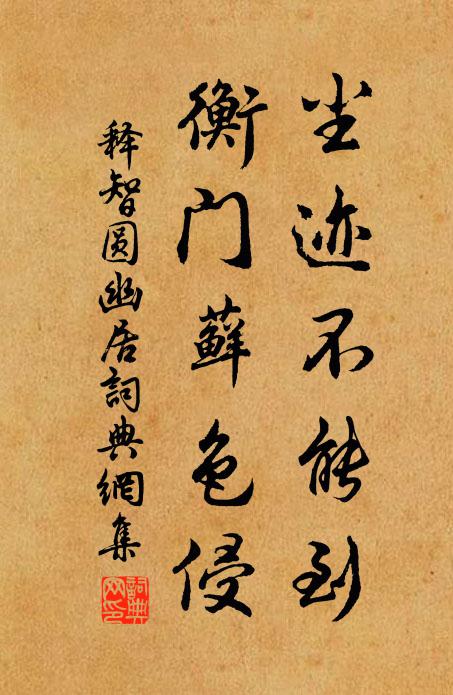 尘迹不能到
衡门蘚色侵
释智圆幽居詞典網集
詞典
网印